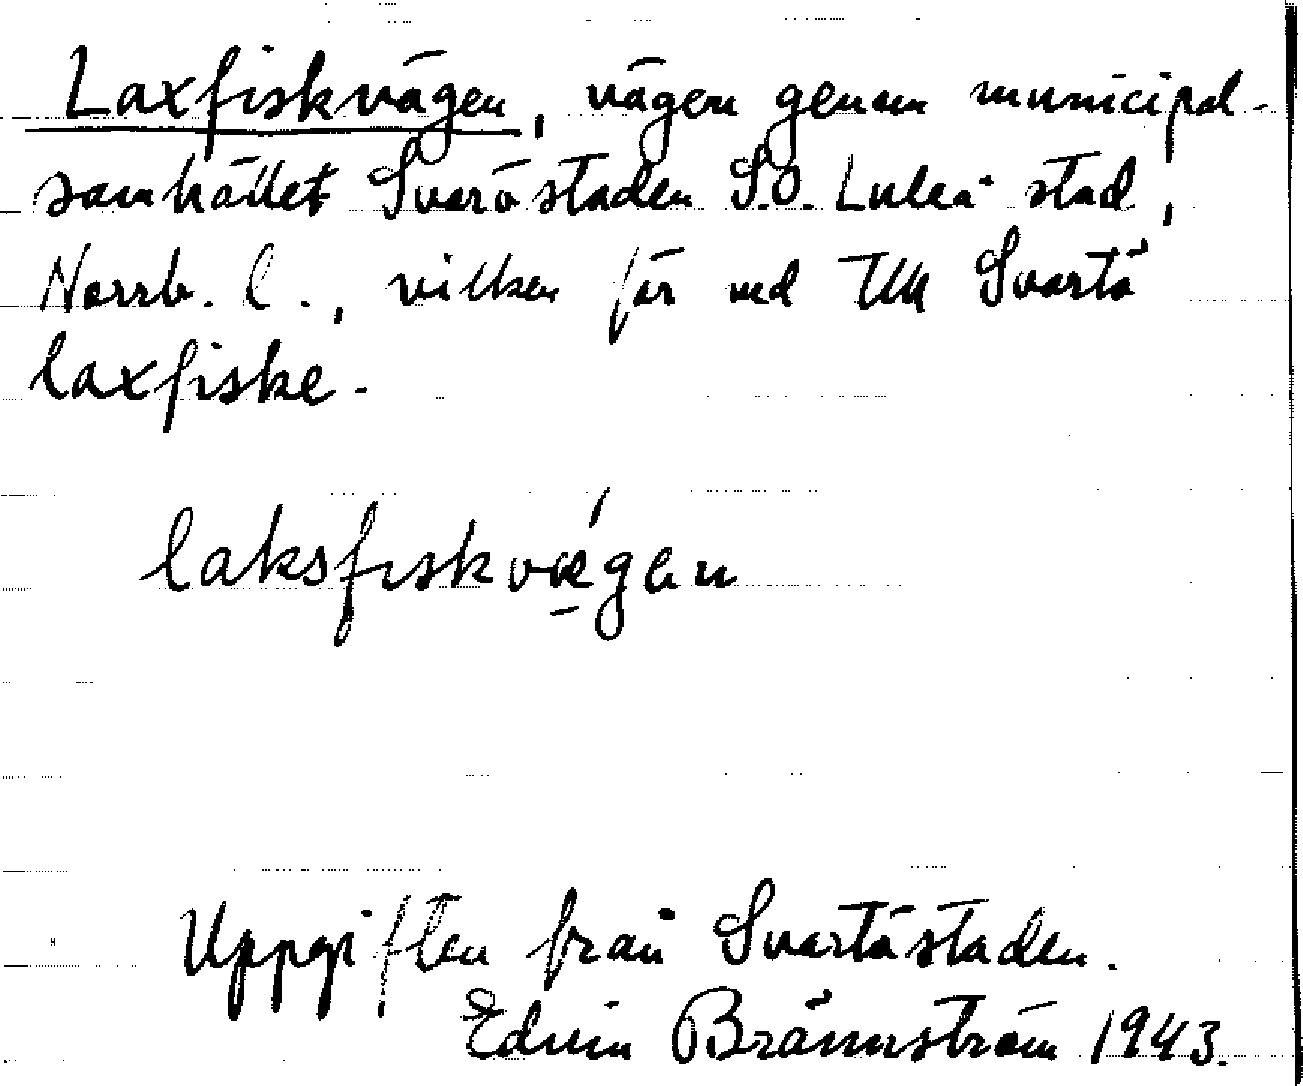 Laxfiskvägen, vägen genom municipal-
samhället Svaröstaden S.O. Luleå stad,
Norrb. l., vilken för ned till Svartö
laxfiske.
laksfiskvægen
Uppgiften från Svartöstaden.
Edvin Brännström 1943.